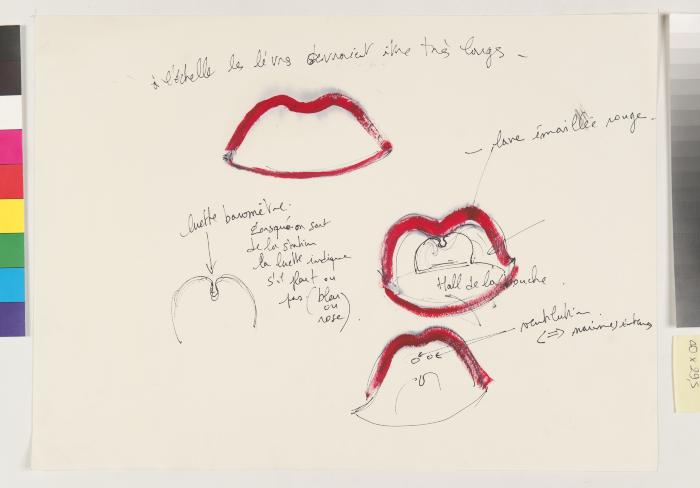 à l'échelle les lèvres devraient être très longs -
- lave émaillée rouge -
luette baromètre.
Lorsque on sort
de la station
la luette indique
s'il pleut ou
pas (bleu
ou
rose).
Hall de la bouche.
ventilation
(=>
40 x 29,5